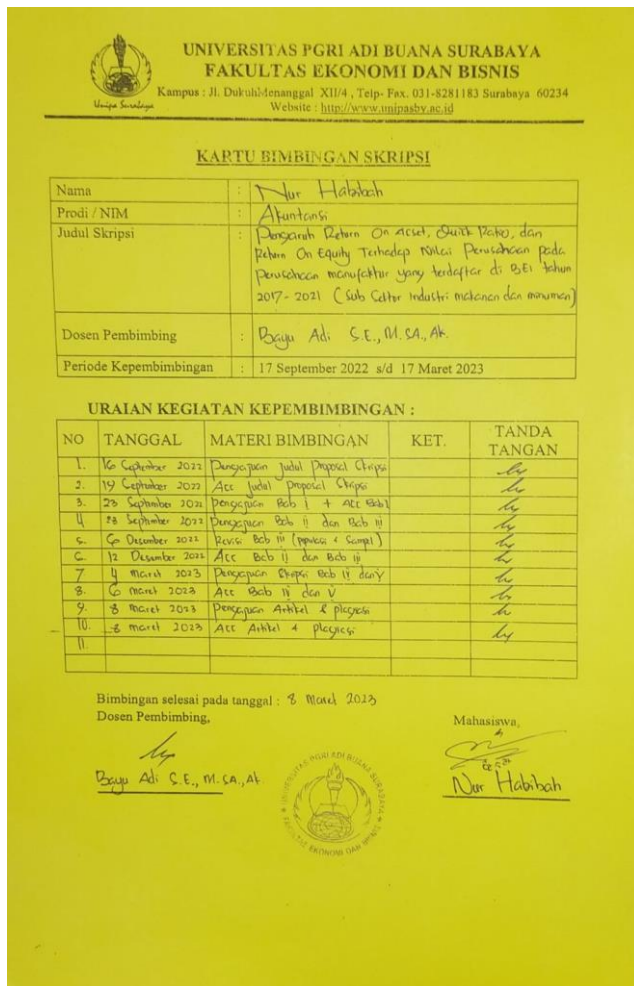 UNIVERSITAS PGRI ADI BUANA SURABAYA
FAKULTAS EKONOMI DAN BISNIS
Kampus : Jl. DukuhMenanggal XII/4 , Telp- Fax. 031-8281183 Surabaya 60234
Website : http://www.unipasby.ac.id
Unipa Surabaya
KARTU BIMBINGAN SKRIPSI
Nama : Nur Habibah
Prodi / NIM : Akuntansi
Judul Skripsi : Pengaruh Return On Asset, Quick Ratio, dan
Return On Equity Terhadap Nilai Perusahaan pada
perusahaan manufaktur yang terdaftar di BEI tahun
2017 - 2021 (Sub Sektor Industri makanan dan minuman)
Dosen Pembimbing : Bayu Adi S.E., M.SA., Ak.
Periode Kepembimbingan : 17 September 2022 s/d 17 Maret 2023
URAIAN KEGIATAN KEPEMBIMBINGAN :
NO TANGGAL MATERI BIMBINGAN KET. TANDA
TANGAN
1. 16 September 2022 Pengajuan Judul Proposal Skripsi
2. 19 September 2022 Acc Judul Proposal Skripsi
3. 23 September 2022 Pengajuan Bab I + Acc Bab I
4 28 September 2022 Pengajuan Bab ii dan Bab iii
5. 6 Desember 2022 Revisi Bab iii (populasi & Sampel)
6. 12 Desember 2022 Acc Bab ii dan Bab iii
7 4 maret 2023 Pengajuan Skripsi Bab dan V
8. 6 maret 2023 Acc Bab dan V
9. 8 maret 2023 Pengajuan Artikel & plagiasi
10. 8 maret 2023 Acc Artikel & plagiasi
11.
Bimbingan selesai pada tanggal : 8 Maret 2023
Dosen Pembimbing, Mahasiswa,
Bayu Adi S.E., M.SA., Ak. Nur Habibah
UNIVERSITAS PGRI ADI BUANA SURABAYA
FAKULTAS EKONOMI DAN BISNIS